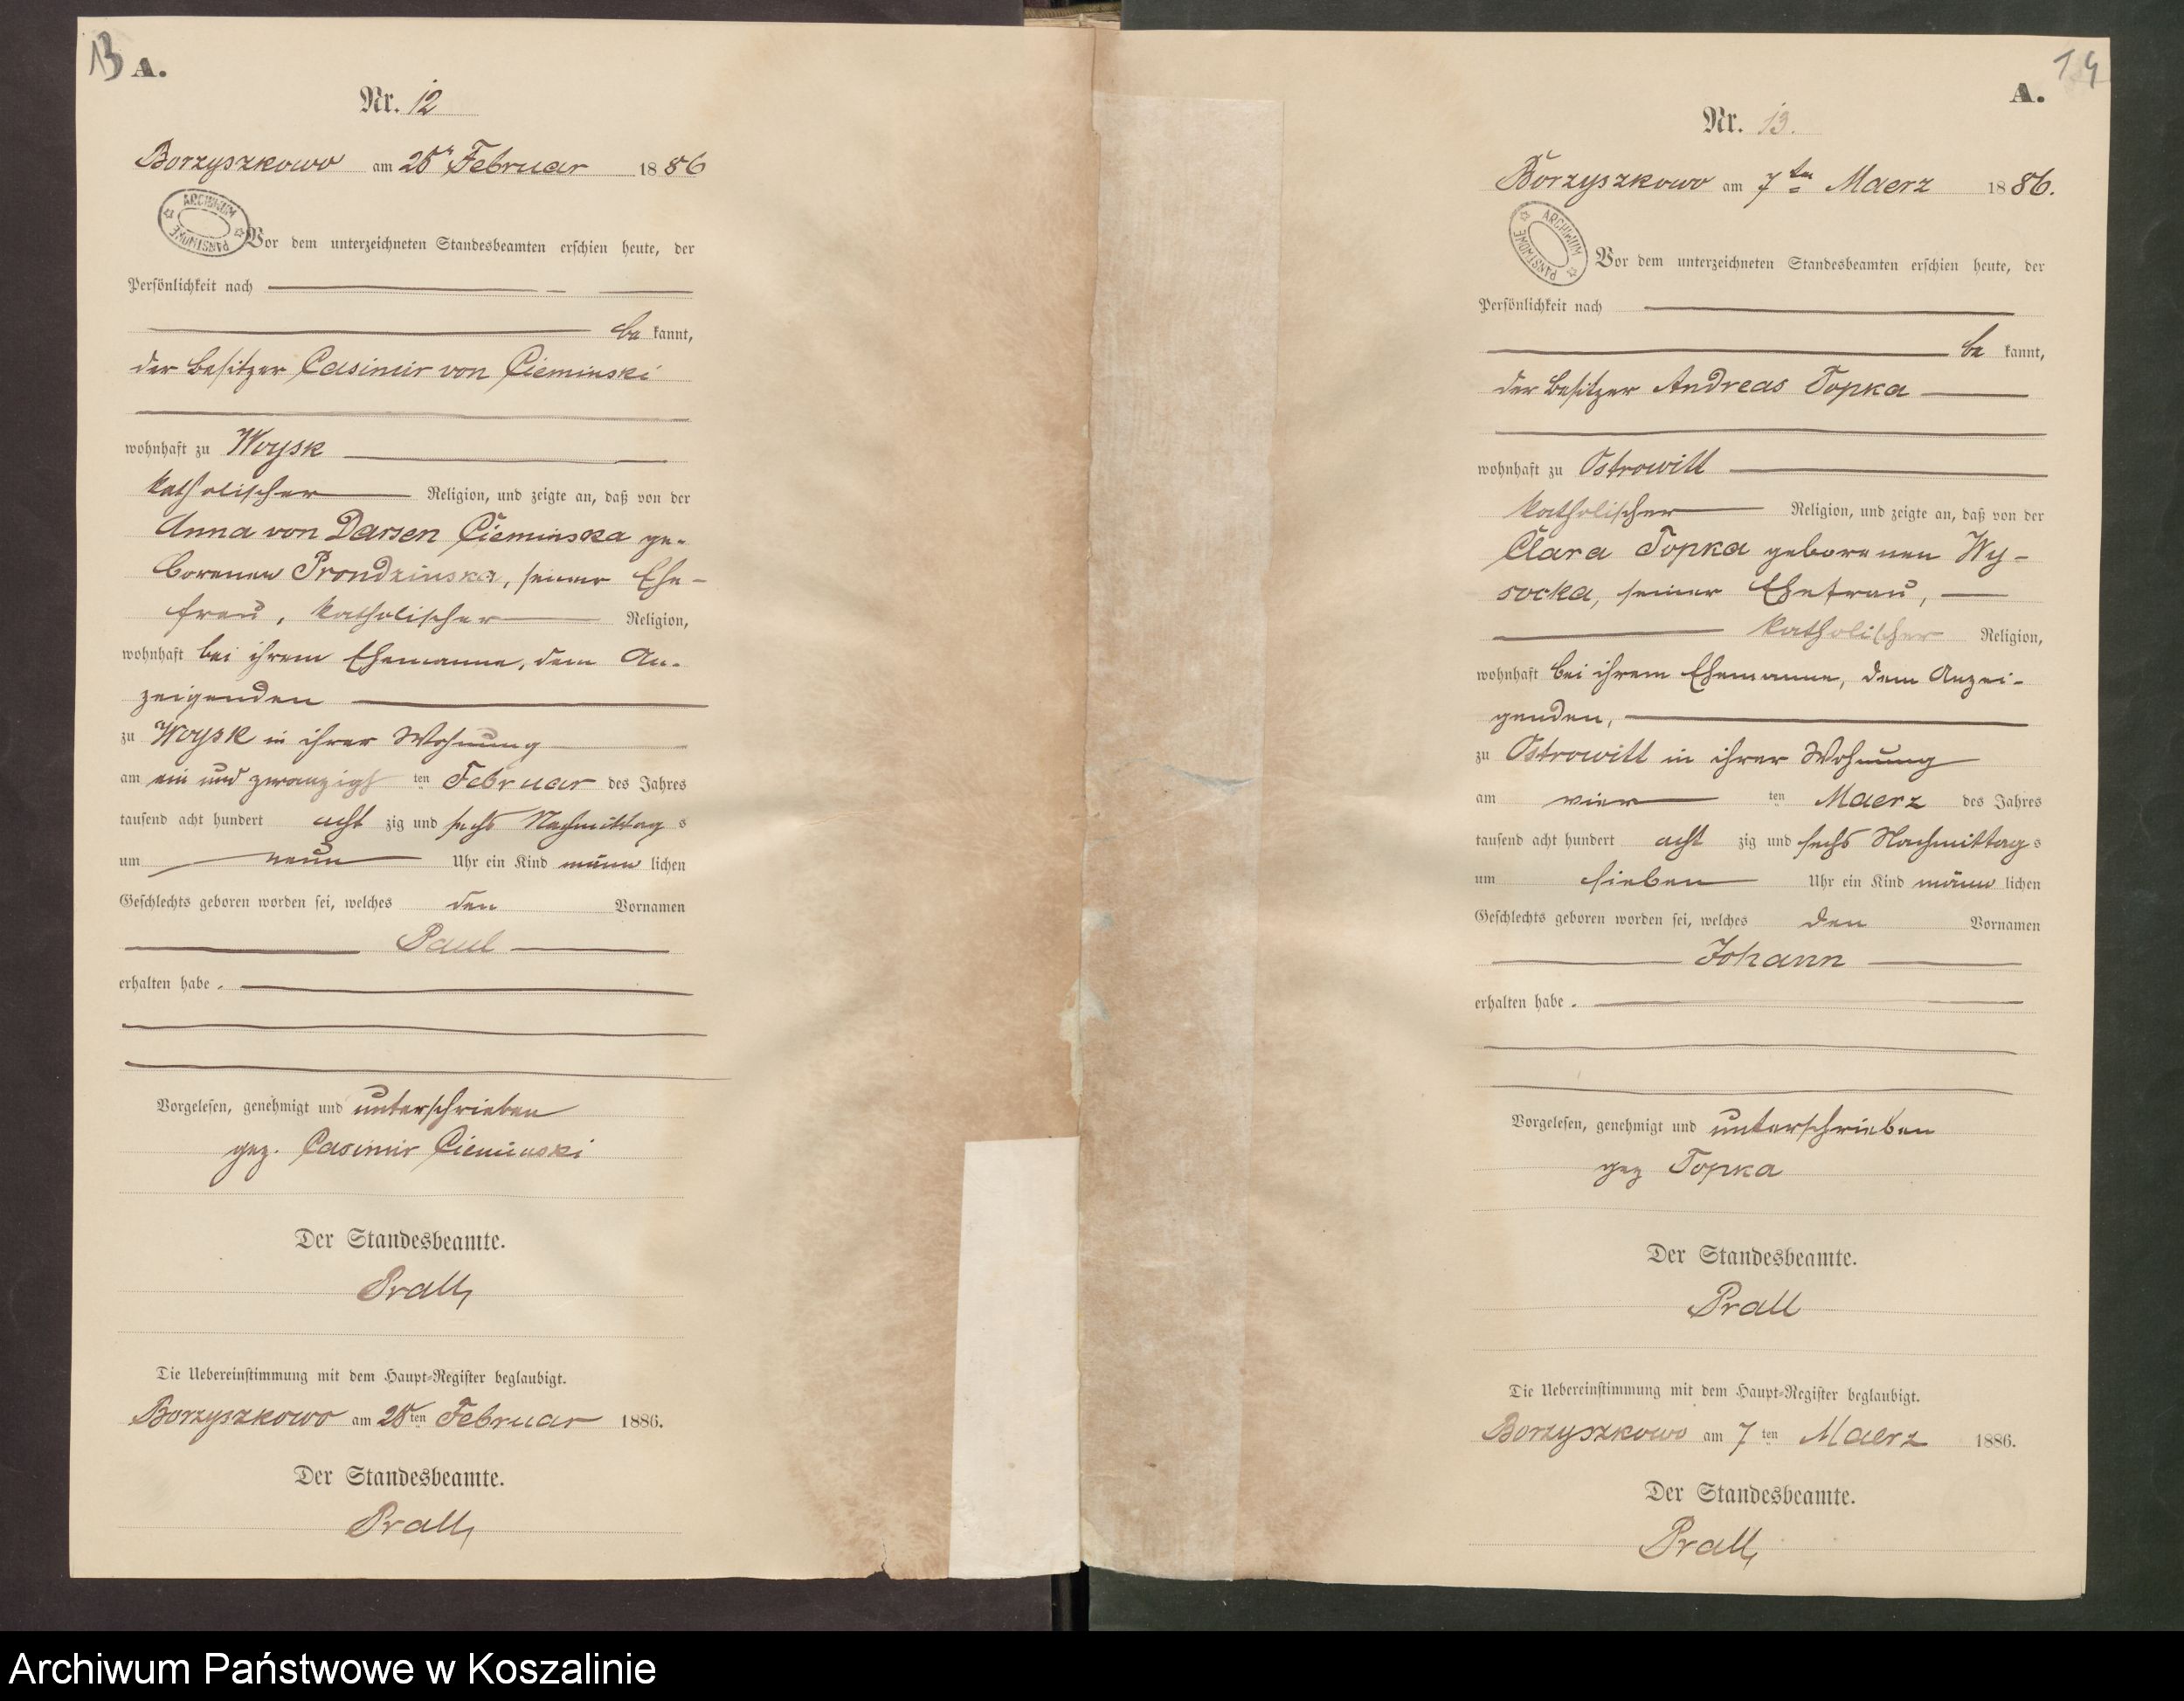 13 A.
Nr. 12
Borzyszkowo am 28ᵗ Februar 1886
ARCHIWUM PAŃSTWOWE
Vor dem unterzeichneten Standesbeamten erschien heute, der
Persönlichkeit nach
be kannt,
der Besitzer Casimir von Cieminski
wohnhaft zu Woysk
katholischer Religion, und zeigte an, daß von der
Anna von Darsen Cieminska ge-
borenen Prondzinska, seiner Ehe-
frau, katholischer Religion,
wohnhaft bei ihrem Ehemanne, dem An-
zeigenden
zu Woysk in ihrer Wohnung
am ein und zwanzigs ten Februar des Jahres
tausend acht hundert acht zig und sechs Nachmittag s
um neun Uhr ein Kind männ lichen
Geschlechts geboren worden sei, welches den Vornamen
Paul
erhalten habe.
Vorgelesen, genehmigt und unterschrieben
gez. Casimir Cieminski
Der Standesbeamte.
Prall
Die Uebereinstimmung mit dem Haupt-Register beglaubigt.
Borzyszkowo am 28 ten Februar 1886.
Der Standesbeamte.
Prall
14
A.
Nr. 13.
Borzyszkowo am 7ten Maerz 1886.
ARCHIWUM PAŃSTWOWE
Vor dem unterzeichneten Standesbeamten erschien heute, der
Persönlichkeit nach
be kannt,
der Besitzer Andreas Topka
wohnhaft zu Ostrowitt
katholischer Religion, und zeigte an, daß von der
Clara Topka geborenen Wy-
socka, seiner Ehefrau,
katholischer Religion,
wohnhaft bei ihrem Ehemanne, dem Anzei-
genden,
zu Ostrowitt in ihrer Wohnung
am vier ten Maerz des Jahres
tausend acht hundert acht zig und sechs Nachmittag s
um sieben Uhr ein Kind männ lichen
Geschlechts geboren worden sei, welches den Vornamen
Johann
erhalten habe.
Vorgelesen, genehmigt und unterschrieben
gez Topka
Der Standesbeamte.
Prall
Die Uebereinstimmung mit dem Haupt-Register beglaubigt.
Borzyszkowo am 7 ten Maerz 1886.
Der Standesbeamte.
Prall
Archiwum Państwowe w Koszalinie